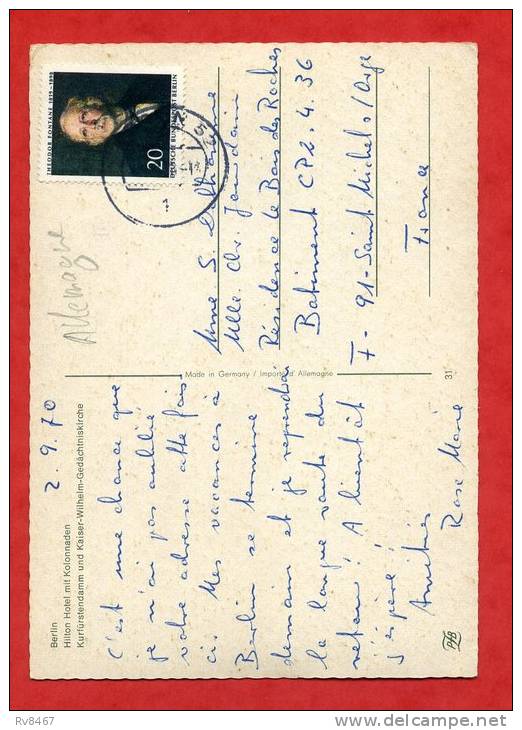 Berlin
Hilton Hotel mit Kolonnaden
Kurfürstendamm und Kaiser-Wilhelm-Gedächtniskirche
2.9.70
C'est une chance que
je n'ai pas oublié
votre adresse cette fois
ci. Mes vacances à
Berlin se termine
demain et je reprendrai
la longue route du
retour! A bientôt
j'espère!
Amitiés
Rose Marie
Made in Germany / Importé d'Allemagne
31
PfB
Allemagne
THEODOR FONTANE 1819-1898
20
DEUTSCHE BUNDESPOST BERLIN
Mme S.
Mlle. Chr. Jourdain
Résidence le Bois des Roches
Batiment CP2.4.36
F-91-Saint Michel s/Orge
France
Rv8467